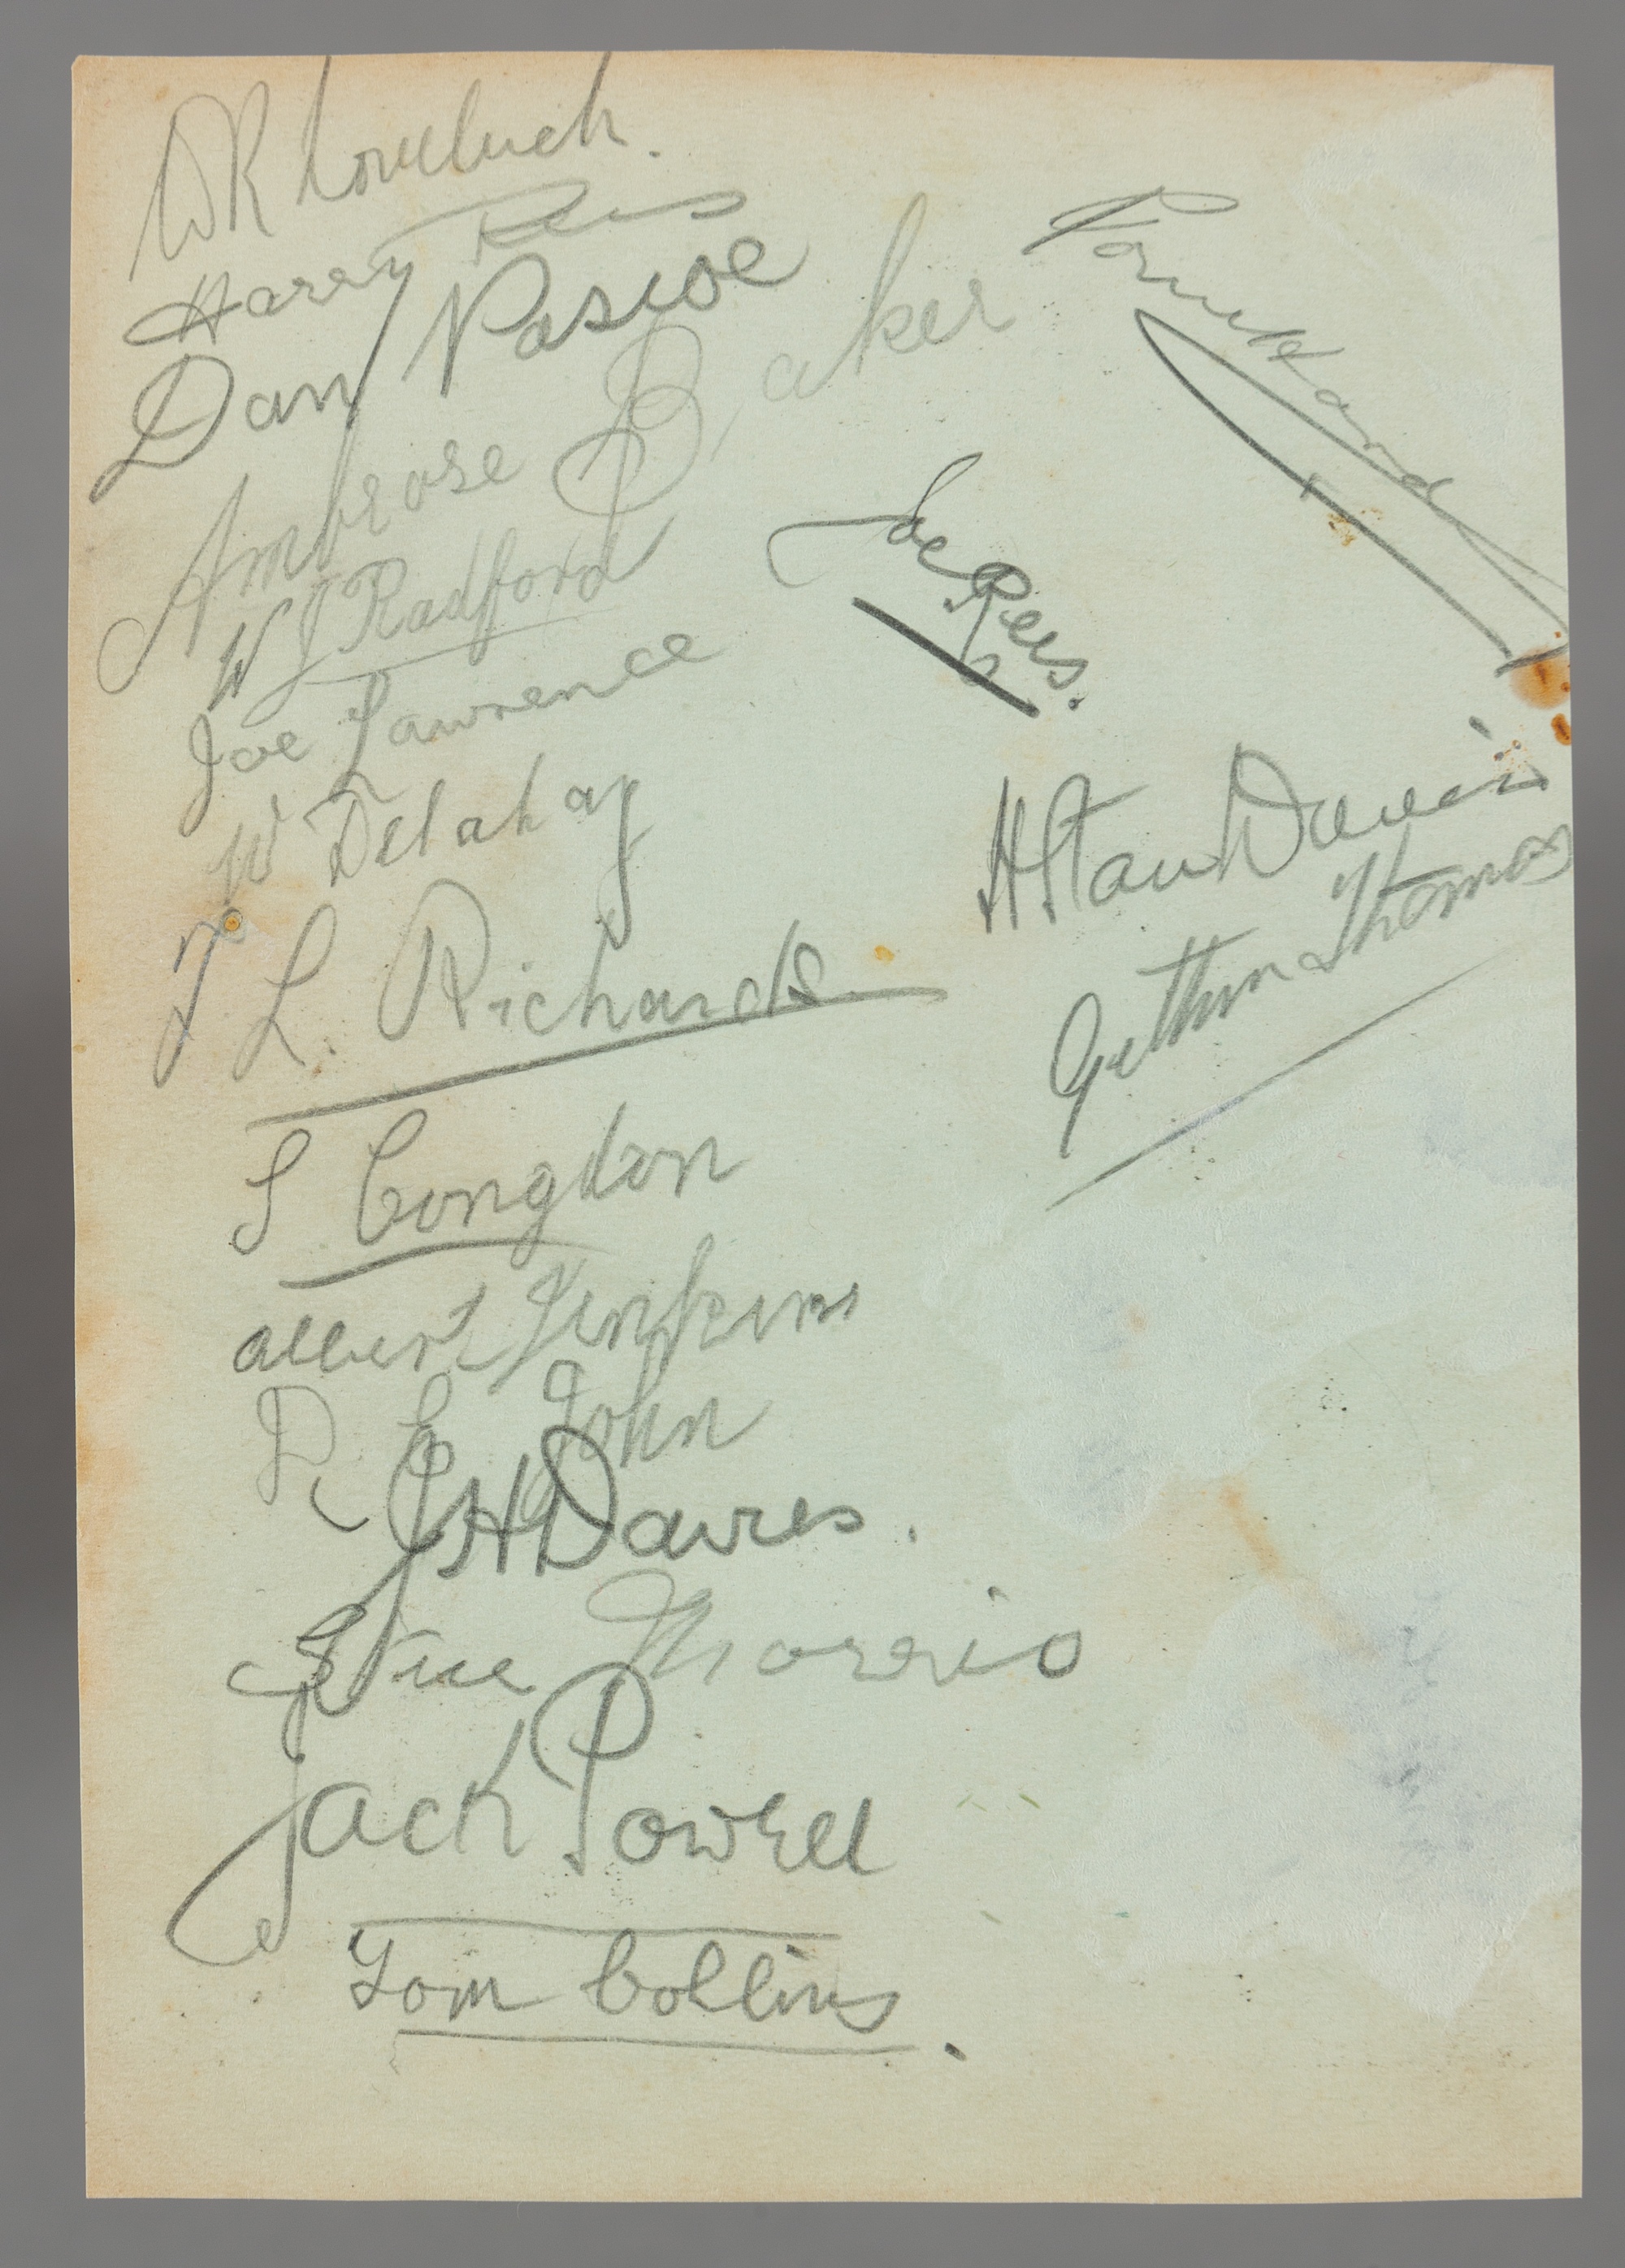 WR Loveluck.
Harry Rees
Dan Pascoe
Ambrose Baker
W J Radford
Joe Lawrence
W Delahay
T L. Richards
S Congdon
Albert Jenkins
D E John
J H Davies.
Steve Morris
Jack Powell
Tom Collins.
Joe Rees.
H Stan Davies
Gethin Thomas